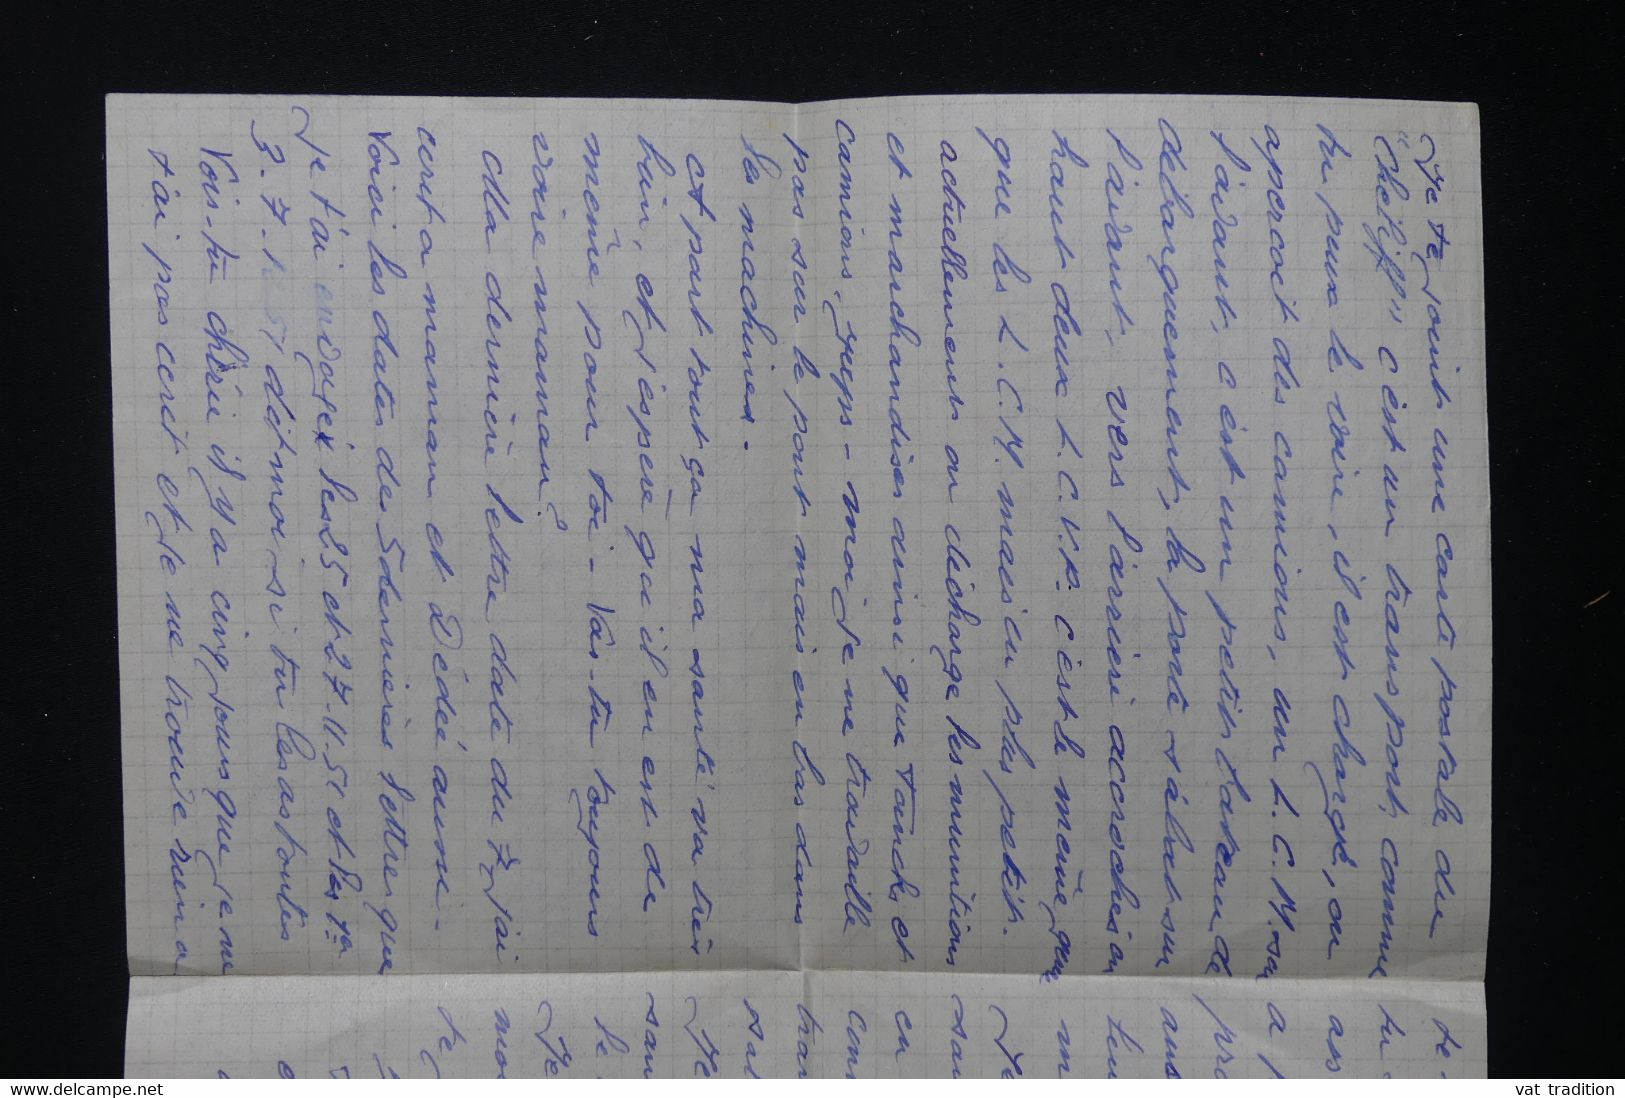 Je te joint une carte postale du
"Chéliff" c'est un transport, comme
tu peux le voir, il est chargé, on
apercoit des camions, un L.C.M. sur
l'avant, c'est un petit bateau de
débarquement, la porte s'abat sur
l'avant, vers l'arrière accrochés en
haut deux L.C.V.P. c'est le même genre
que les L.C.M. mais en plus petit.
actuellement on décharge les munitions
et marchandises ainsi que Tanks, et
camions, Jeeps - moi je ne travaille
pas sur le pont mais en bas dans
les machines.
A part tout ça ma santé va très
bien, et j'espère qu'il en est de
même pour toi - Vas-tu toujours
voire maman?
Ma dernière lettre date du 7, j'ai
écrit a maman et Dédé aussi -
Voici les dates des 5 dernières lettres que
Je t'ai envoyéx les 25 et 27.11.51 et les 1er
3. 7. 12 51, dit moi si tu les as toutes
Vois-tu chérie il y a cinq jours que je ne
t'ai pas écrit et je ne trouve rien a
te
tu
ass
a
pro
ans
un
Je
san
en
com
tran
sui
Je
san
le
Je
mo
te
vat tradition